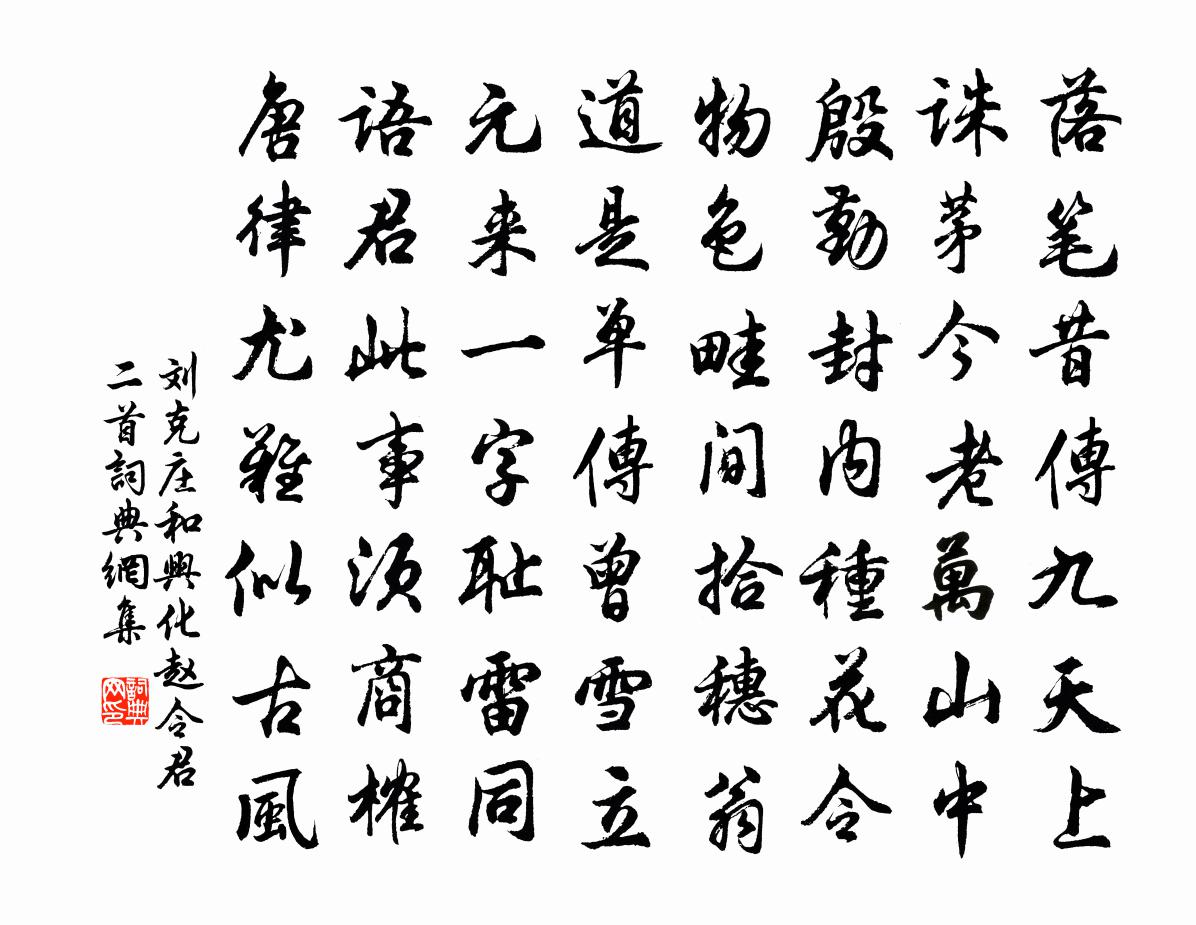 落笔昔傳九天上
誅茅今老萬山中
殷勤封内種花令
物色畦間拾穗翁
道是单傳曾雪立
元来一字耻雷同
語君此事须商榷
唐律尤難似古風
刘克庄和興化赵令君
二首詞典網集
詞典网印